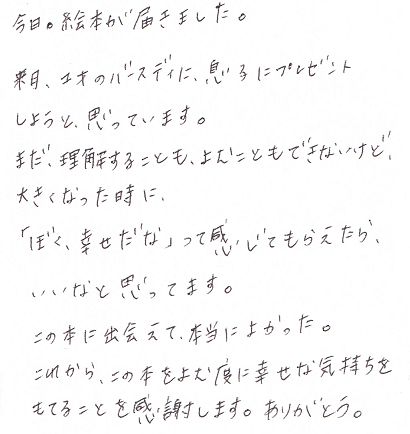 今日。絵本が届きました。
来月、1才のバースディに、息子にプレゼント
しようと、思っています。
まだ、理解することも、よむこともできないけど、
大きくなった時に、
「ぼく、幸せだな」って感じてもらえたら、
いいなと思ってます。
この本に出会えて、本当によかった。
これから、この本をよむ度に幸せな気持ちを
もてることを感謝します。ありがとう。